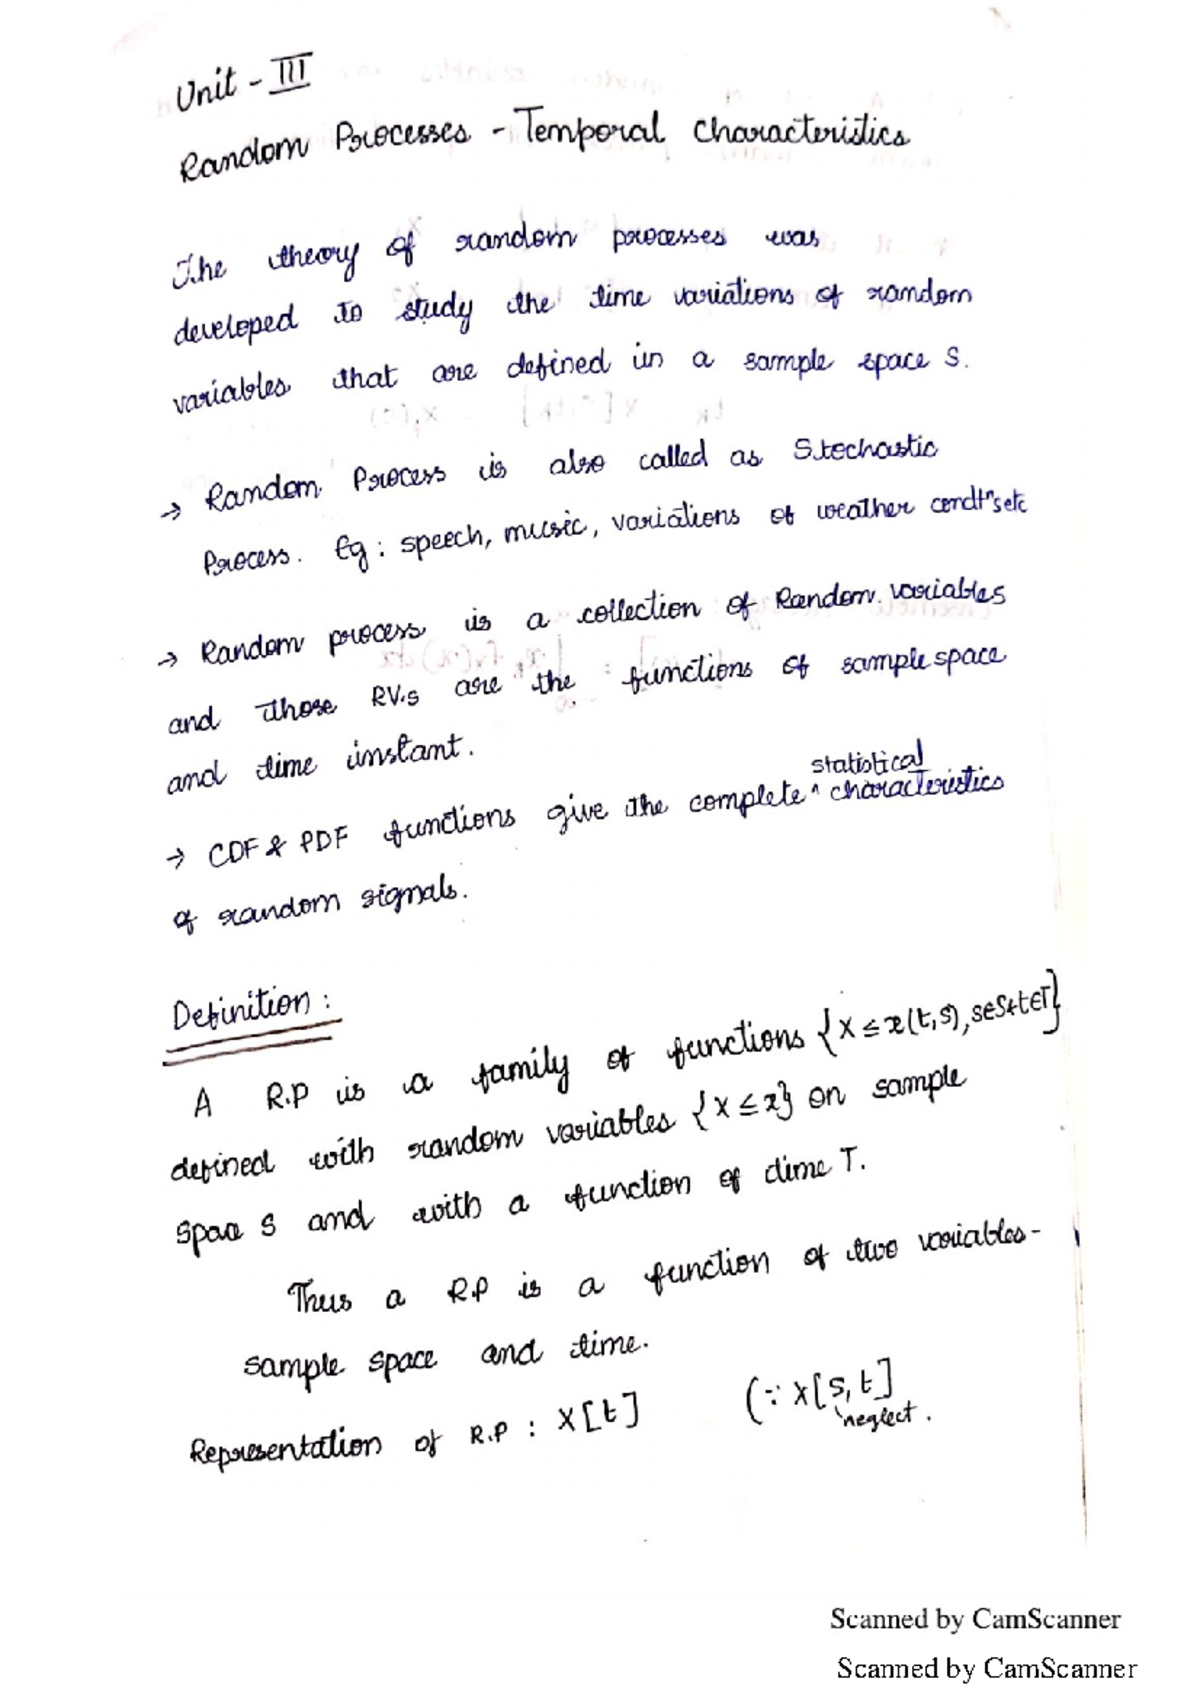 Unit - III
Random Processes - Temporal characteristics
The theory of random processes was
developed to study the time variations of random
variables that are defined in a sample space S.
→ Random Process is also called as Stochastic
Process. Eg : speech, music, variations of weather condtⁿs etc
→ Random process is a collection of Random variables
and those RV.s are the functions of sample space
and time instant.
statistical
→ CDF & PDF functions give the complete ^ characteristics
of random signals.
Definition :
A R.P is a family of functions {X ≤ x(t,s), s∈S & t∈T}
defined with random variables {X ≤ x} on sample
space S and with a function of time T.
Thus a R.P is a function of two variables -
sample space and time.
Representation of R.P : X[t] (∵ X[s,t]
neglect.
Scanned by CamScanner
Scanned by CamScanner